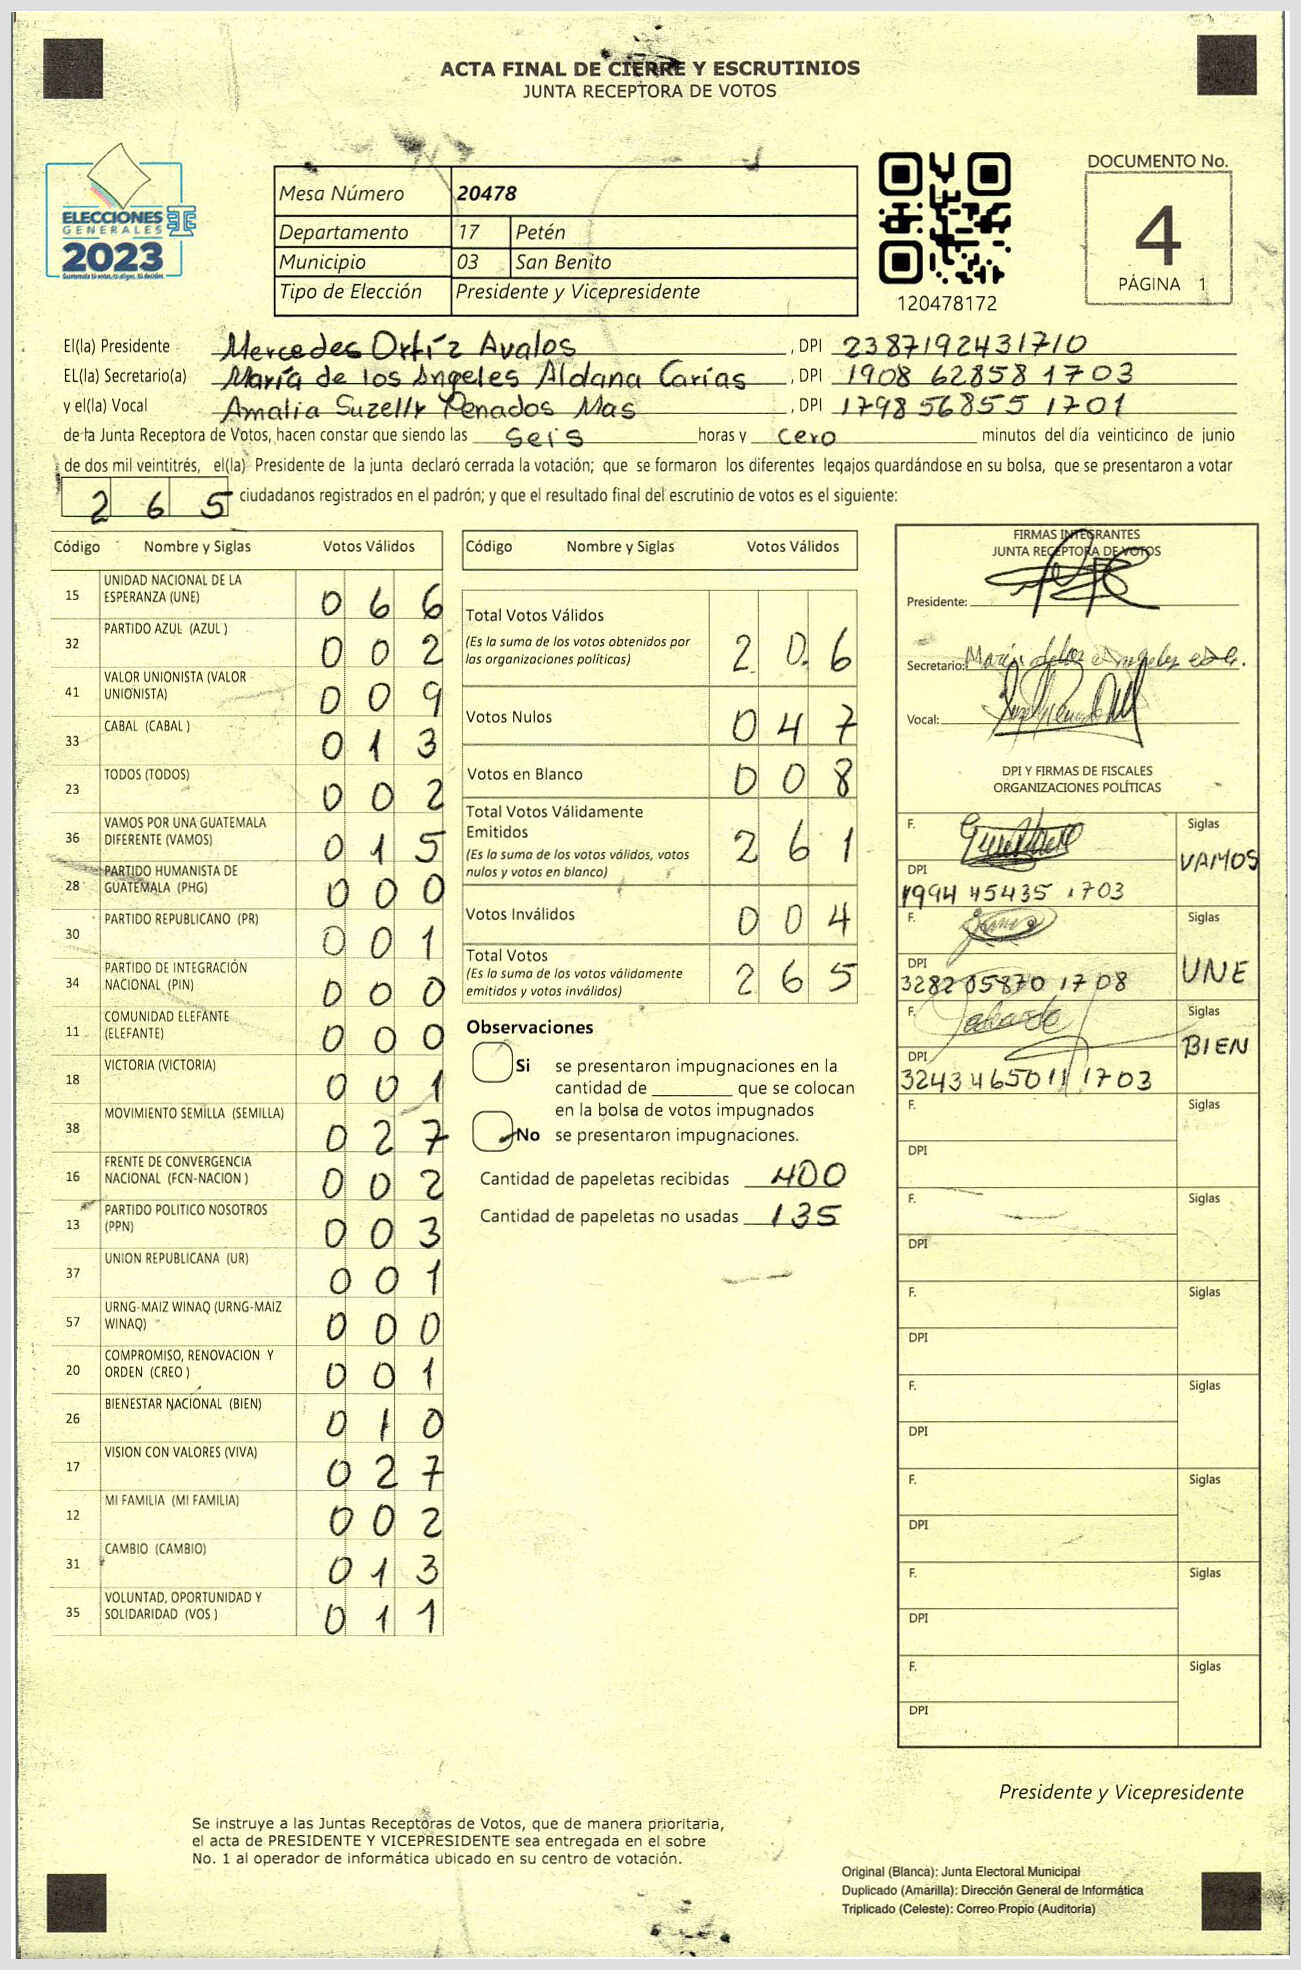 ACTA FINAL DE CIERRE Y ESCRUTINIOS
JUNTA RECEPTORA DE VOTOS
ELECCIONES
GENERALES
2023
Mesa Número 20478
Departamento 17 Petén
Municipio 03 San Benito
Tipo de Elección Presidente y Vicepresidente
120478172
DOCUMENTO No.
4
PÁGINA 1
El(la) Presidente Mercedes Ortíz Avalos , DPI 2387192431710
EL(la) Secretario(a) María de los Angeles Aldana Carías , DPI 1908 62858 1703
y el(la) Vocal Amalia Suzelly Penados Mas , DPI 1798 56855 1701
de la Junta Receptora de Votos, hacen constar que siendo las seis horas y cero minutos del día veinticinco de junio
de dos mil veintitrés, el(la) Presidente de la junta declaró cerrada la votación; que se formaron los diferentes legajos quardándose en su bolsa, que se presentaron a votar
2 6 5 ciudadanos registrados en el padrón; y que el resultado final del escrutinio de votos es el siguiente:
Código Nombre y Siglas Votos Válidos
15 UNIDAD NACIONAL DE LA ESPERANZA (UNE) 0 6 6
32 PARTIDO AZUL (AZUL ) 0 0 2
41 VALOR UNIONISTA (VALOR UNIONISTA) 0 0 9
33 CABAL (CABAL ) 0 1 3
23 TODOS (TODOS) 0 0 2
36 VAMOS POR UNA GUATEMALA DIFERENTE (VAMOS) 0 1 5
28 PARTIDO HUMANISTA DE GUATEMALA (PHG) 0 0 0
30 PARTIDO REPUBLICANO (PR) 0 0 1
34 PARTIDO DE INTEGRACIÓN NACIONAL (PIN) 0 0 0
11 COMUNIDAD ELEFANTE (ELEFANTE) 0 0 0
18 VICTORIA (VICTORIA) 0 0 1
38 MOVIMIENTO SEMILLA (SEMILLA) 0 2 7
16 FRENTE DE CONVERGENCIA NACIONAL (FCN-NACION ) 0 0 2
13 PARTIDO POLITICO NOSOTROS (PPN) 0 0 3
37 UNION REPUBLICANA (UR) 0 0 1
57 URNG-MAIZ WINAQ (URNG-MAIZ WINAQ) 0 0 0
20 COMPROMISO, RENOVACION Y ORDEN (CREO ) 0 0 1
26 BIENESTAR NACIONAL (BIEN) 0 1 0
17 VISION CON VALORES (VIVA) 0 2 7
12 MI FAMILIA (MI FAMILIA) 0 0 2
31 CAMBIO (CAMBIO) 0 1 3
35 VOLUNTAD, OPORTUNIDAD Y SOLIDARIDAD (VOS ) 0 1 1
Código Nombre y Siglas Votos Válidos
Total Votos Válidos
(Es la suma de los votos obtenidos por las organizaciones políticas) 2 0 6
Votos Nulos 0 4 7
Votos en Blanco 0 0 8
Total Votos Válidamente Emitidos
(Es la suma de los votos válidos, votos nulos y votos en blanco) 2 6 1
Votos Inválidos 0 0 4
Total Votos
(Es la suma de los votos válidamente emitidos y votos inválidos) 2 6 5
Observaciones
Si se presentaron impugnaciones en la
cantidad de ________ que se colocan
en la bolsa de votos impugnados
No se presentaron impugnaciones.
Cantidad de papeletas recibidas 400
Cantidad de papeletas no usadas 135
FIRMAS INTEGRANTES
JUNTA RECEPTORA DE VOTOS
Presidente:
Secretario:
Vocal:
DPI Y FIRMAS DE FISCALES
ORGANIZACIONES POLÍTICAS
F. Siglas
VAMOS
DPI
1994 45435 1703
F. Siglas
UNE
DPI
3282 05870 1708
F. Siglas
BIEN
DPI
3243465011 1703
F. Siglas
DPI
F. Siglas
DPI
F. Siglas
DPI
F. Siglas
DPI
F. Siglas
DPI
F. Siglas
DPI
F. Siglas
DPI
Presidente y Vicepresidente
Se instruye a las Juntas Receptoras de Votos, que de manera prioritaria,
el acta de PRESIDENTE Y VICEPRESIDENTE sea entregada en el sobre
No. 1 al operador de informática ubicado en su centro de votación.
Original (Blanca): Junta Electoral Municipal
Duplicado (Amarilla): Dirección General de Informática
Triplicado (Celeste): Correo Propio (Auditoría)